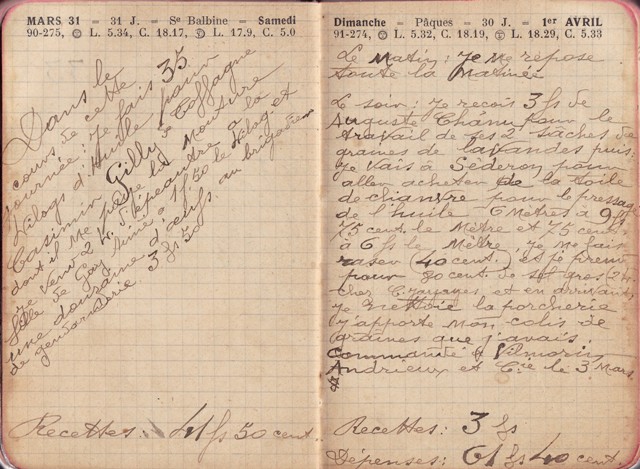 MARS 31 = 31 J. – Se Balbine = Samedi
90-275, L. 5.34, C. 18.17, L. 17.9, C. 5.0
Dans le
cours de cette
journée: Je fais 35
Kilogs d'Huile pour
Casimir Gilly de Coffagne
dont il me
Je vend 2 K. 5 à la
fille de Gay à 11.50 le Kilog et
une douzaine d'œufs au brigadier
de gendarmerie 3 fs 50
Recettes: 41 fs 50 cent
Dimanche = Pâques = 30 J. = 1er AVRIL
91-274, L. 5.32, C. 18.19, L. 18.29, C. 5.33
Le Matin: Je Me repose
toute la Matinée
Le soir: Je recois 3 fs de
Auguste Chanu pour le
travail de ses 2 saches de
graines de lavandes puis
Je vais à Séderon pour
aller acheter de la toile
de chanvre pour le pressage
de l'huile 6 Mètres à 9 fs
75 cent le Mètre et 75 cent
à 6 fs le Mètre, Je me fais
raser (40 cent.) et Je prend
pour 80 cent de sel gros (2 K.)
chez C. Jayayes et en arrivant
Je nettoie la porcherie
J'apporte Mon colis de
graines que j'avais
Commandé à Vilmorin
Andrieux et Cie le 3 Mars
Recettes: 3 fs
Dépenses: 61 fs 40 cent